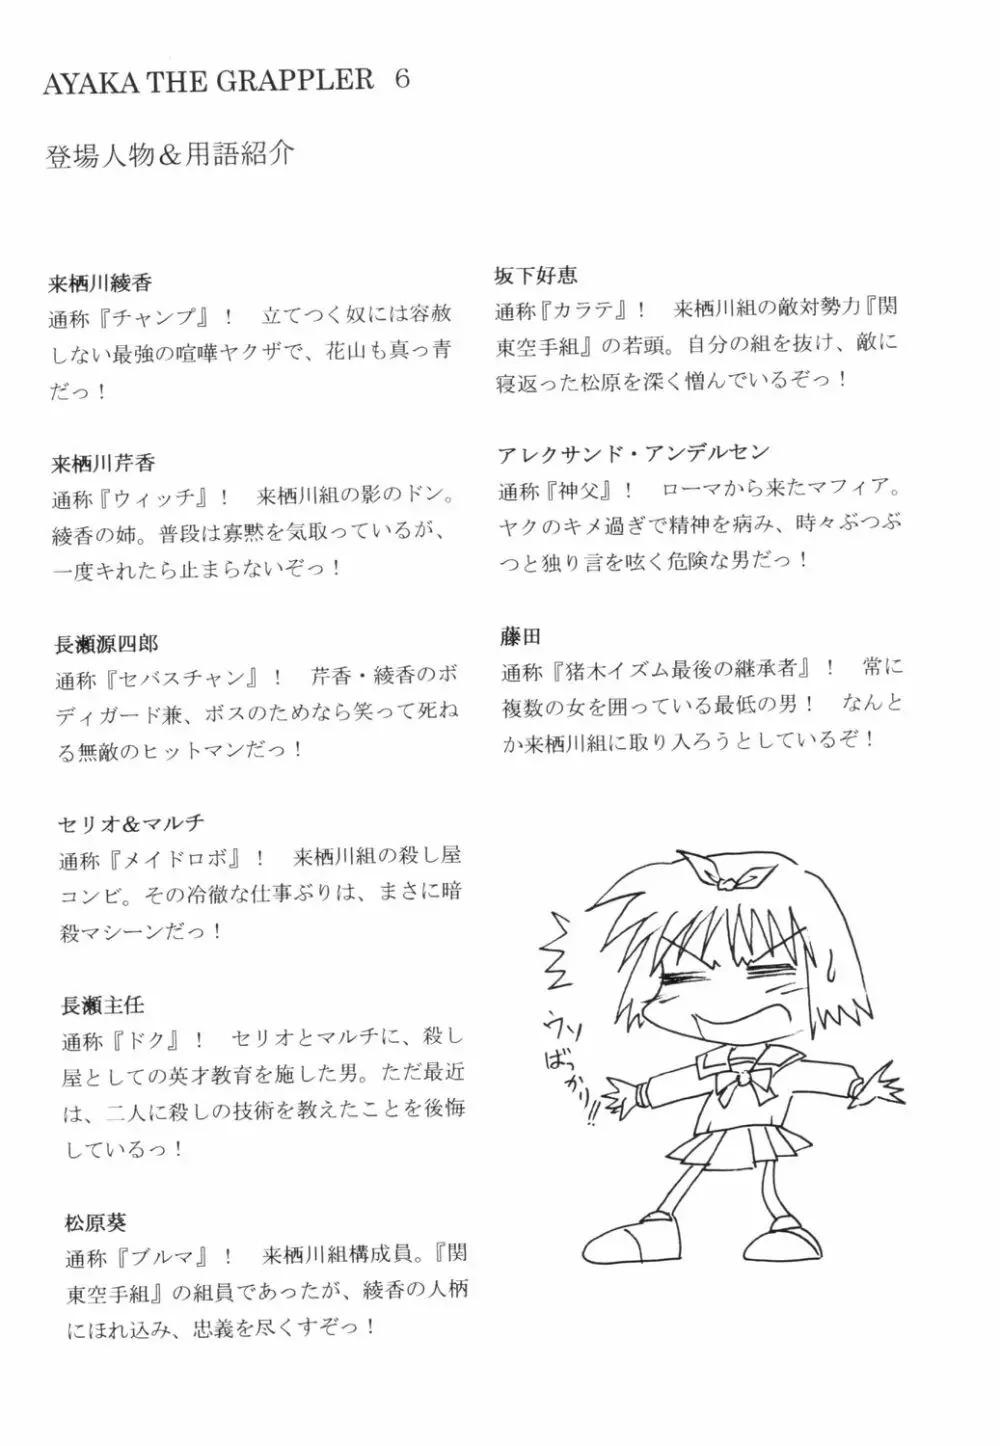 AYAKA THE GRAPPLER 6
登場人物＆用語紹介
来栖川綾香
通称『チャンプ』！　立てつく奴には容赦
しない最強の喧嘩ヤクザで、花山も真っ青
だっ！
来栖川芹香
通称『ウィッチ』！　来栖川組の影のドン。
綾香の姉。普段は寡黙を気取っているが、
一度キれたら止まらないぞっ！
長瀬源四郎
通称『セバスチャン』！　芹香・綾香のボ
ディガード兼、ボスのためなら笑って死ね
る無敵のヒットマンだっ！
セリオ＆マルチ
通称『メイドロボ』！　来栖川組の殺し屋
コンビ。その冷徹な仕事ぶりは、まさに暗
殺マシーンだっ！
長瀬主任
通称『ドク』！　セリオとマルチに、殺し
屋としての英才教育を施した男。ただ最近
は、二人に殺しの技術を教えたことを後悔
しているっ！
松原葵
通称『ブルマ』！　来栖川組構成員。『関
東空手組』の組員であったが、綾香の人柄
にほれ込み、忠義を尽くすぞっ！
坂下好恵
通称『カラテ』！　来栖川組の敵対勢力『関
東空手組』の若頭。自分の組を抜け、敵に
寝返った松原を深く憎んでいるぞっ！
アレクサンド・アンデルセン
通称『神父』！　ローマから来たマフィア。
ヤクのキメ過ぎで精神を病み、時々ぶつぶ
つと独り言を呟く危険な男だっ！
藤田
通称『猪木イズム最後の継承者』！　常に
複数の女を囲っている最低の男！　なんと
か来栖川組に取り入ろうとしているぞ！
ウソ
ばっかり!!